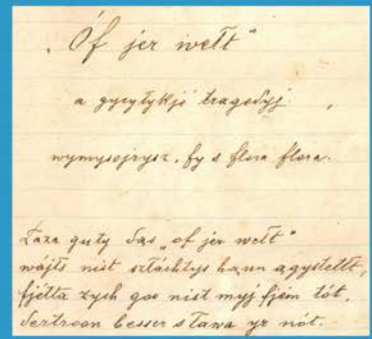 „Óf jer wełt“
a gycytykjé tragedyj.
wymysojrysz, fy s flora flora.
Łaza guty das „of jer wełt“
wájts nist szłáchtys hann agystełłt,
fjetta zych goo nist myj fjem tót,
dertroon besser s ława yr nót.